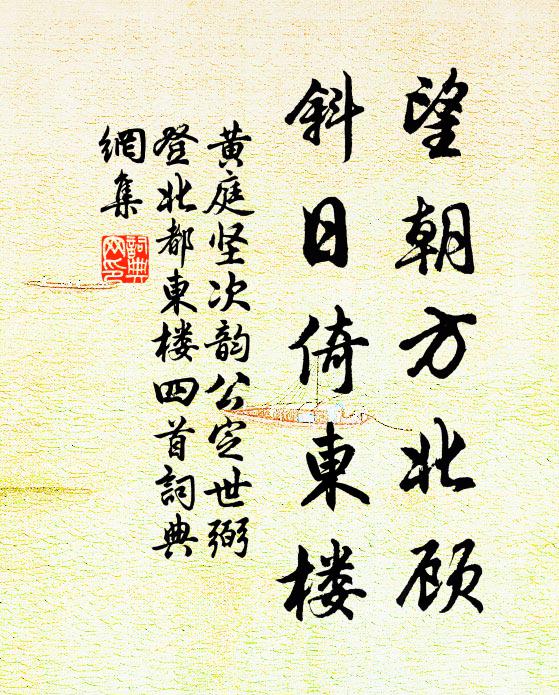 望朝方北顾
斜日倚東楼
黄庭坚次韵公定世弼
登北都東楼四首詞典
網集
詞典
网印